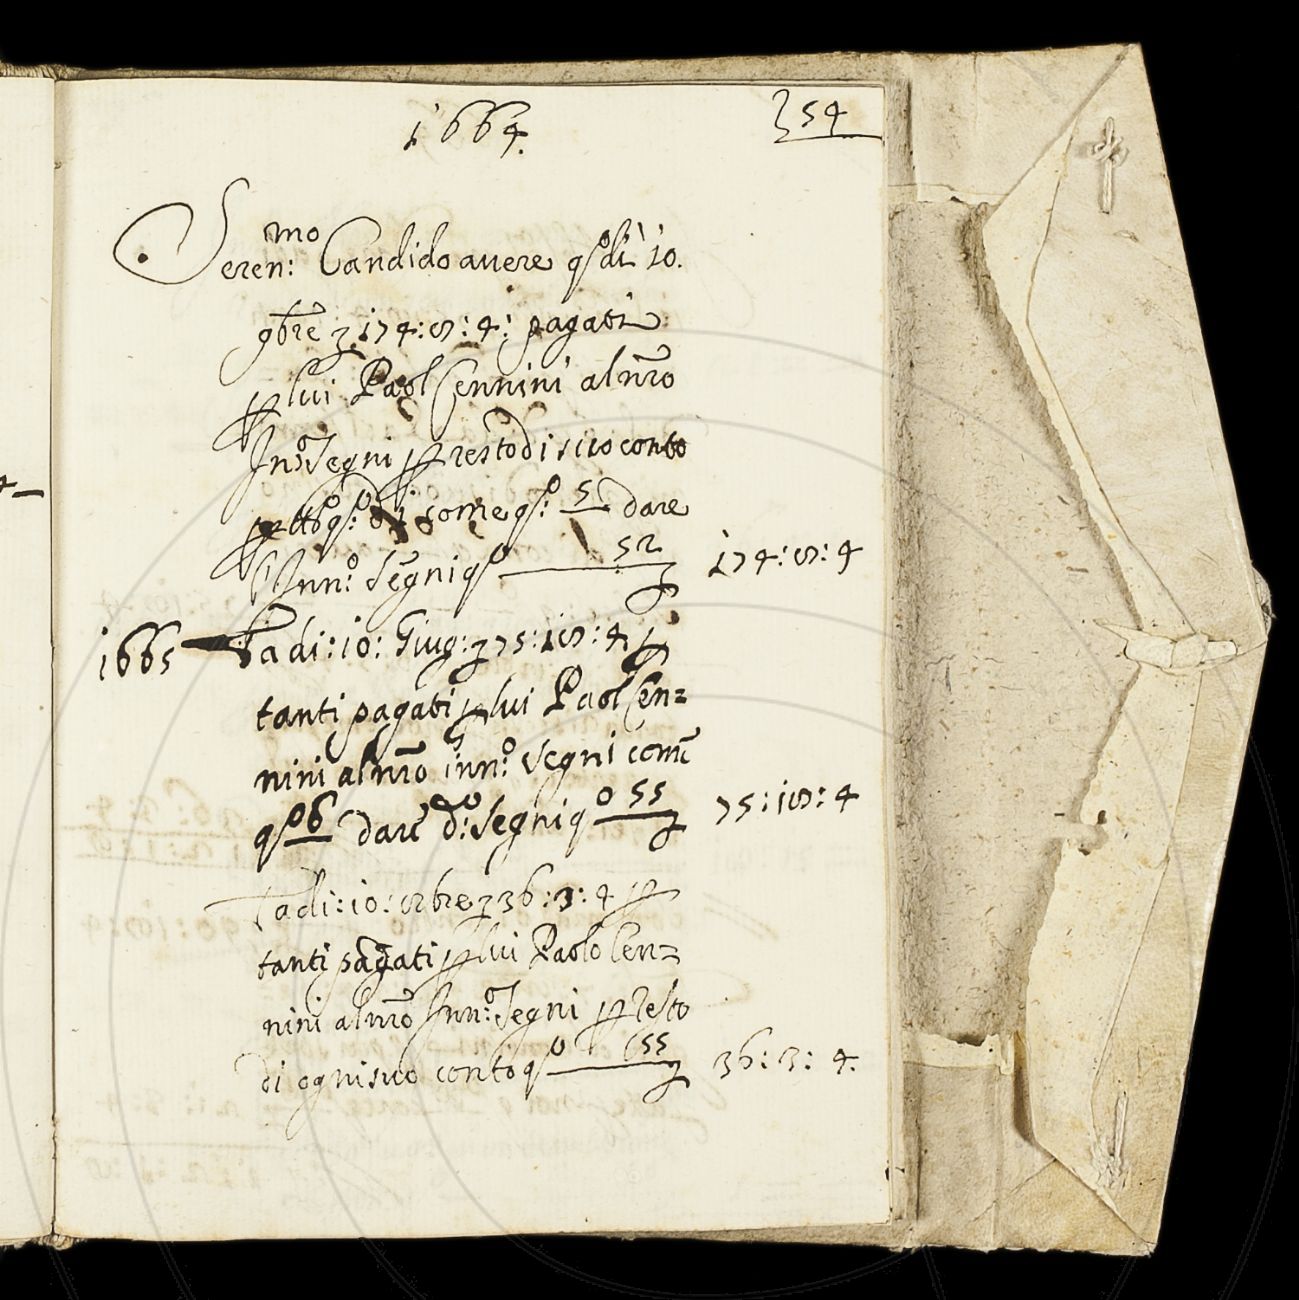 1664. 54
Seren:mo Candido avere qsto dì 10.
9bre 174:8:4: pagati
p lui Paol Cennini al nro
Inno Segni p resto di suo conto
p tto qso dì come qso: 5 dare
Inn:o Segni qso 52 174:8:4
1665 E a di: 10: Giug: 75:18:4 p
tanti pagati p lui Paol Cen=
nini al nro inn:o Segni come
qso 6 dare do: Segni qo 55 75:18:4
E a di: 10: 8bre 36:3:4 p
tanti pagati p lui Paolo Cen=
nini al nro Inn:o Segni p resto
di ogni suo conto qso 55 36:3:4.